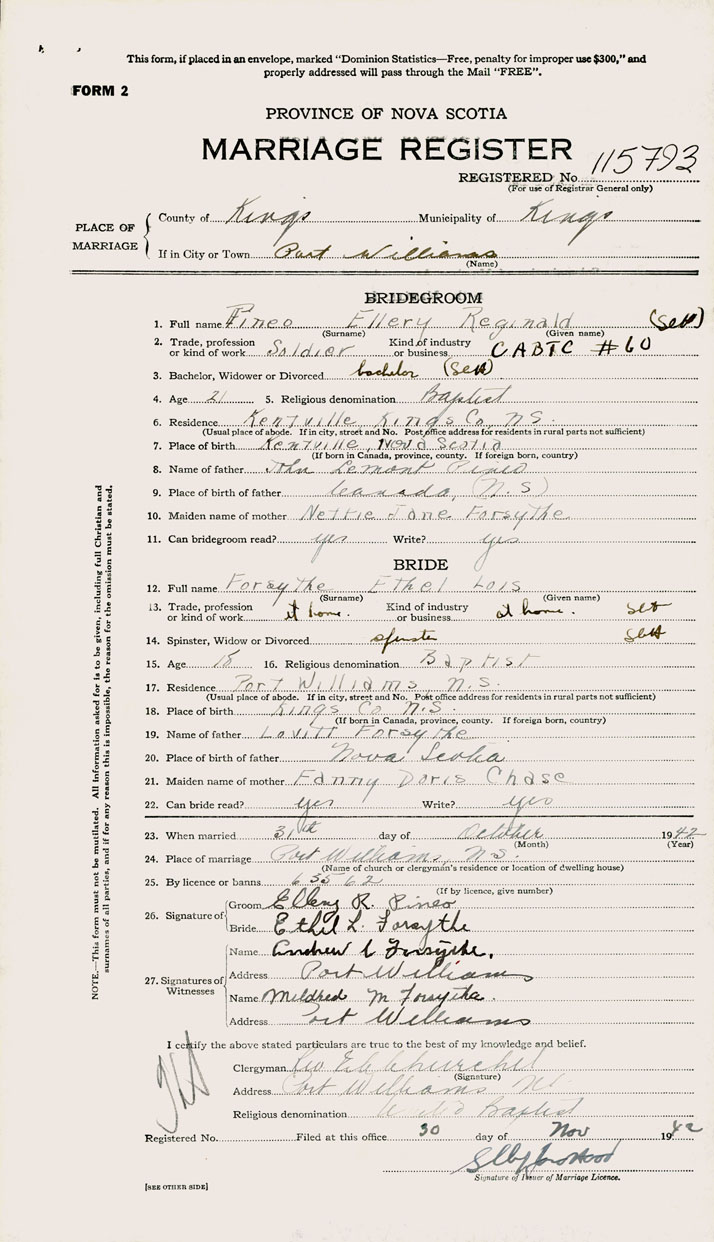 This form, if placed in an envelope, marked "Dominion Statistics—Free, penalty for improper use $300," and
properly addressed will pass through the Mail "FREE".
FORM 2
PROVINCE OF NOVA SCOTIA
MARRIAGE REGISTER
REGISTERED No. 115793
(For use of Registrar General only)
PLACE OF MARRIAGE
County of Kings Municipality of Kings
If in City or Town Port Williams
(Name)
BRIDEGROOM
1. Full name Pineo Ellery Reginald
(Surname) (Given name)
2. Trade, profession or kind of work Soldier Kind of industry or business CABTC #60
3. Bachelor, Widower or Divorced bachelor
4. Age 21 5. Religious denomination Baptist
6. Residence Kentville Kings Co. N.S.
(Usual place of abode. If in city, street and No. Post office address for residents in rural parts not sufficient)
7. Place of birth Kentville, Nova Scotia
(If born in Canada, province, county. If foreign born, country)
8. Name of father John Lemont Pineo
9. Place of birth of father Canada, (N.S)
10. Maiden name of mother Nettie Jane Forsythe
11. Can bridegroom read? yes Write? yes
BRIDE
12. Full name Forsythe Ethel Lois
(Surname) (Given name)
13. Trade, profession or kind of work at home. Kind of industry or business at home.
14. Spinster, Widow or Divorced spinster
15. Age 18 16. Religious denomination Baptist
17. Residence Port Williams N.S.
(Usual place of abode. If in city, street and No. Post office address for residents in rural parts not sufficient)
18. Place of birth Kings Co. N.S.
(If born in Canada, province, county. If foreign born, country)
19. Name of father Lovitt Forsythe
20. Place of birth of father Nova Scotia
21. Maiden name of mother Fanny Doris Chase
22. Can bride read? yes Write? yes
23. When married 31th day of October 1942
(Month) (Year)
24. Place of marriage Port Williams, N.S.
(Name of church or clergyman's residence or location of dwelling house)
25. By licence or banns 65562
(If by licence, give number)
26. Signature of Groom Ellery R. Pineo
Bride Ethel L. Forsythe
27. Signatures of Witnesses
Name Andrew L Forsythe.
Address Port Williams
Name Mildred M Forsythe.
Address Port Williams
I certify the above stated particulars are true to the best of my knowledge and belief.
Clergyman Rev Churchill
(Signature)
Address Port Williams NS.
Religious denomination United Baptist
Registered No. Filed at this office 30 day of Nov 1942
Signature of Issuer of Marriage Licence.
[SEE OTHER SIDE]
NOTE.—This form must not be mutilated. All Information asked for is to be given, including full Christian and
surnames of all parties, and if for any reason this is impossible, the reason for the omission must be stated.